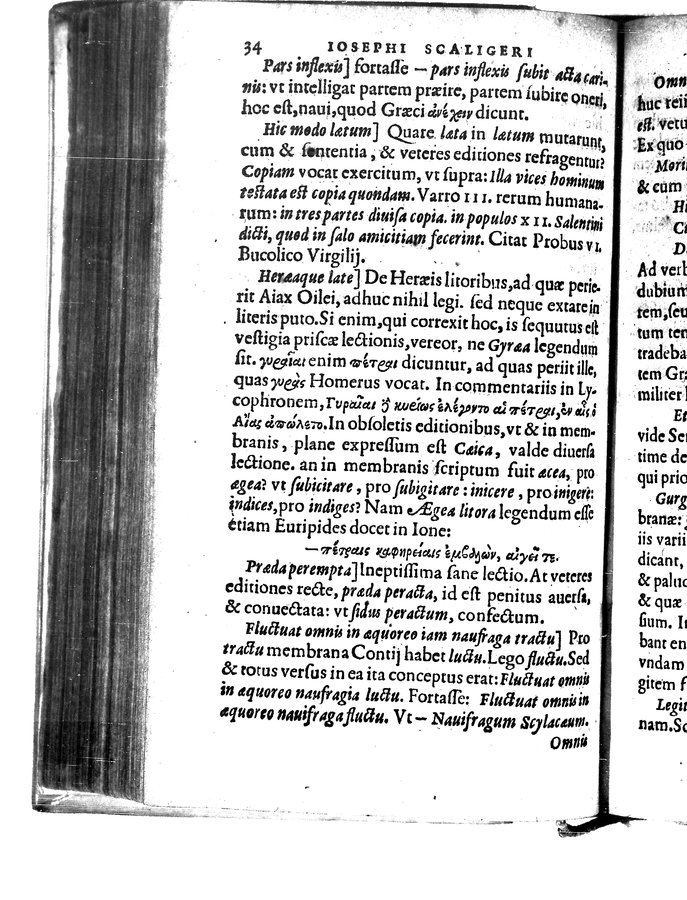 34 IOSEPHI SCALIGERI
Pars inflexis] fortaſſe — pars inflexis ſubit acta cari-
nis: vt intelligat partem præire, partem ſubire oneri,
hoc eſt, naui, quod Græci ἀνέχειν dicunt.
Hic modo latum] Quare lata in latum mutarunt,
cum & ſententia, & veteres editiones refragentur?
Copiam vocat exercitum, vt ſupra: Illa vices hominum
teſtata eſt copia quondam. Varro III. rerum humana-
rum: in tres partes diuiſa copia. in populos XII. Salentini
dicti, quod in ſalo amicitiam fecerint. Citat Probus VI.
Bucolico Virgilij.
Heræaque late] De Heræis litoribus, ad quæ perie-
rit Aiax Oilei, adhuc nihil legi. ſed neque extare in
literis puto. Si enim, qui correxit hoc, is ſequutus eſt
veſtigia priſcæ lectionis, vereor, ne Gyræa legendum
ſit. γυραῖαι enim πέτραι dicuntur, ad quas periit ille,
quas γυρὰς Homerus vocat. In commentariis in Ly-
cophronem, Γυραῖαι ἢ κυρίως ἐλέγοντο αἱ πέτραι, ἐν αἷς ὁ
Αἴας ἀπώλετο. In obſoletis editionibus, vt & in mem-
branis, plane expreſſum eſt Caica, valde diuerſa
lectione. an in membranis ſcriptum fuit acea, pro
agea? vt ſubicitare, pro ſubigitare: inicere, pro inigere:
indices, pro indiges? Nam Ægea litora legendum eſſe
etiam Euripides docet in Ione:
— πέτραις καφηρείαις ἐμβαλὼν, αἰγεῖ τε.
Præda perempta] Ineptiſſima ſane lectio. At veteres
editiones recte, præda peracta, id eſt penitus auerſa,
& conuectata: vt ſidus peractum, confectum.
Fluctuat omnis in æquoreo iam naufraga tractu] Pro
tractu membrana Contij habet luctu. Lego fluctu. Sed
& totus verſus in ea ita conceptus erat: Fluctuat omnis
in æquoreo naufragia luctu. Fortaſſe: Fluctuat omnis in
æquoreo nauifraga fluctu. Vt — Nauifragum Scylaceum.
Omnis
Omn
huc reii
eſt. vetu
Ex quo
Mori
& cum
Hi
Ci
D
Ad verb
dubium
tem, ſeu
tum ten
tradeba
tem Gr
militer l
Et
vide Ser
time de
qui prio
Gurg
branæ:
iis varii
dicant,
& paluc
& quæ
ſium. I
bant en
vndam
gitem f
Legit
nam. Sc